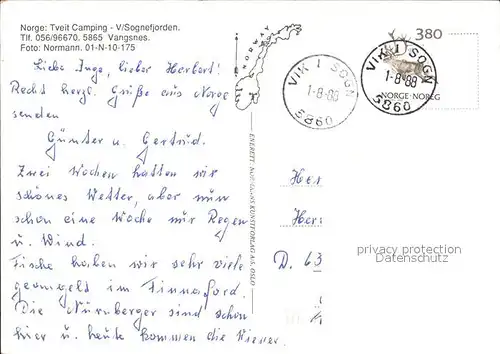 Norge: Tveit Camping - V/Sognefjorden.
Tlf. 056/96670. 5865 Vangsnes.
Foto: Normann. 01-N-10-175
Liebe Inge, lieber Herbert!
Recht herzl. Grüße aus Norge
senden
Günter u. Gertrud.
Zwei Wochen hatten wir
schönes Wetter, aber nun
schon eine Woche nur Regen
u. Wind.
Fische haben wir sehr viele
geangelt im Finnafjord.
Die Nürnberger sind schon
hier u. heute kommen die Wiener.
NORWAY
ENERETT: NORMANNS KUNSTFORLAG A/S, OSLO
VIK I SOGN
1-8-88
5860
380
VIK I SOGN
1-8-88
5860
NORGE·NOREG
Her
Her
D. 63
privacy protection
Datenschutz